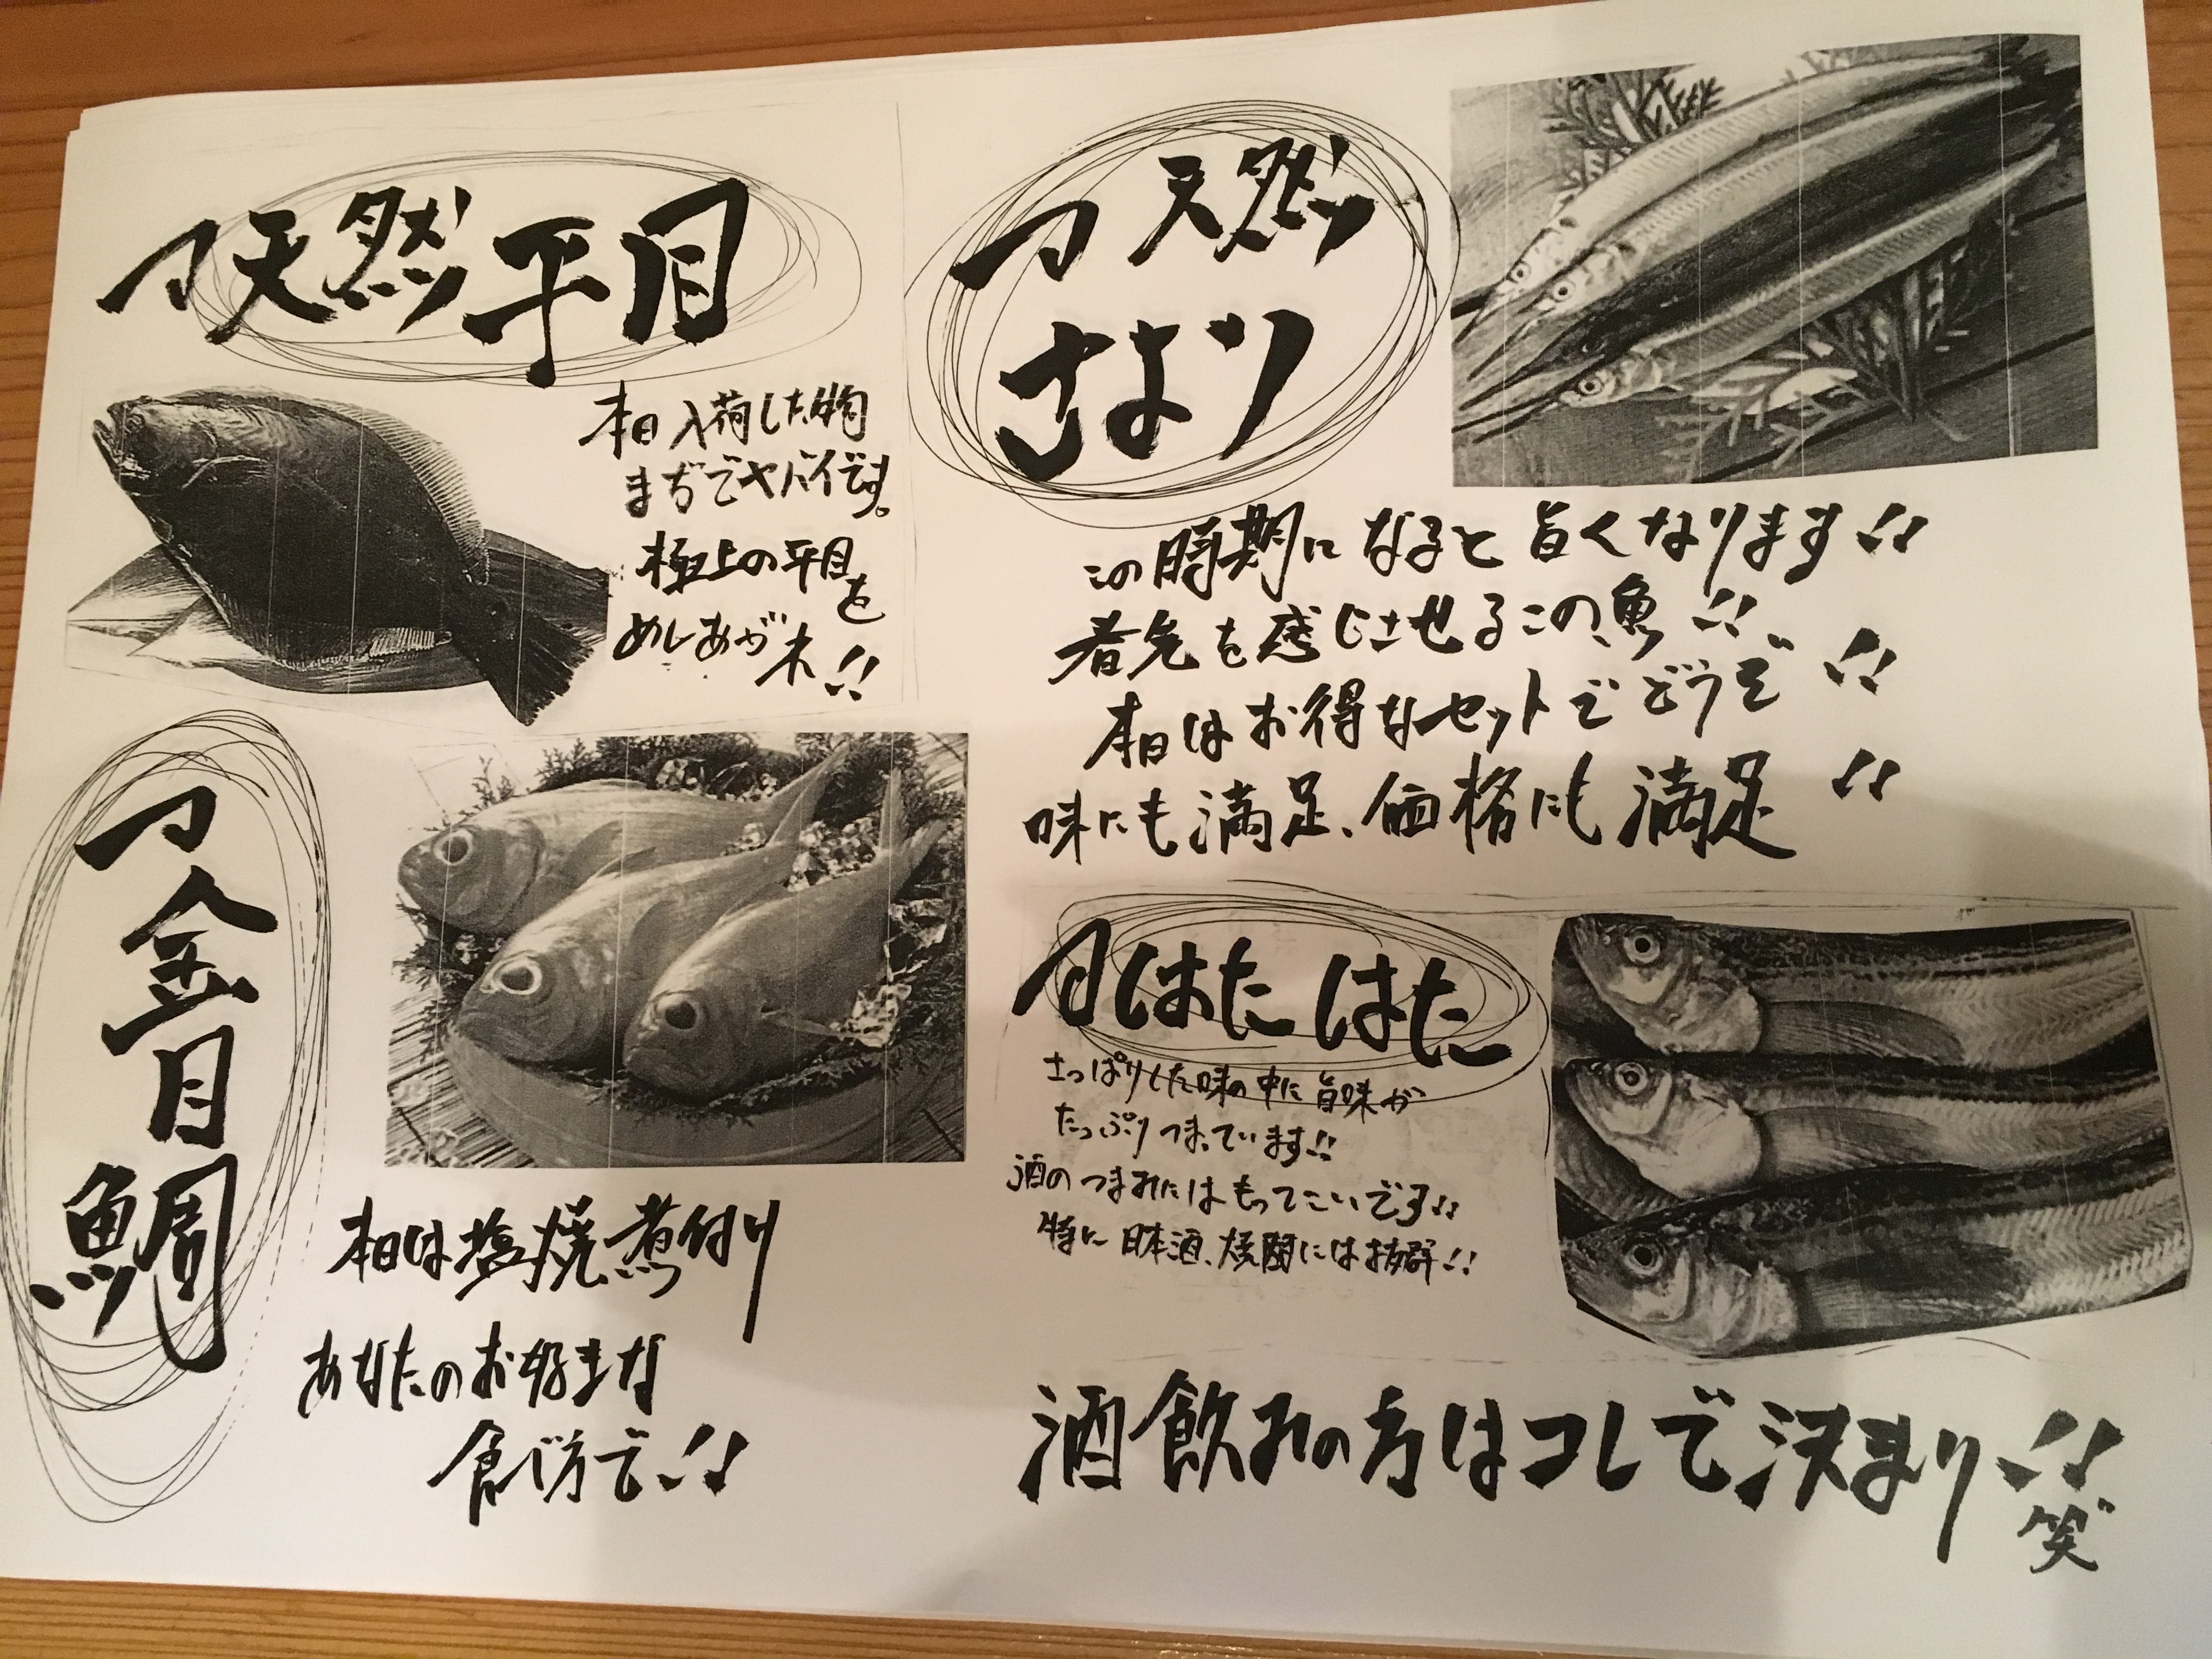 天然平目
本日入荷した物
まぢでヤバイです。
極上の平目を
めしあがれ!!
金目鯛
本日は塩焼、煮付け
あなたのお好きな
食べ方で!!
天然
さより
この時期になると旨くなります!!
春先を感じさせるこの魚!!
本日はお得なセットでどうぞ!!
味にも満足、価格にも満足!!
はたはた
さっぱりした味の中に旨味が
たっぷりつまっています!!
酒のつまみにはもってこいです!!
特に日本酒、焼酎には抜群!!
酒飲みの方はコレで決まり!!
笑